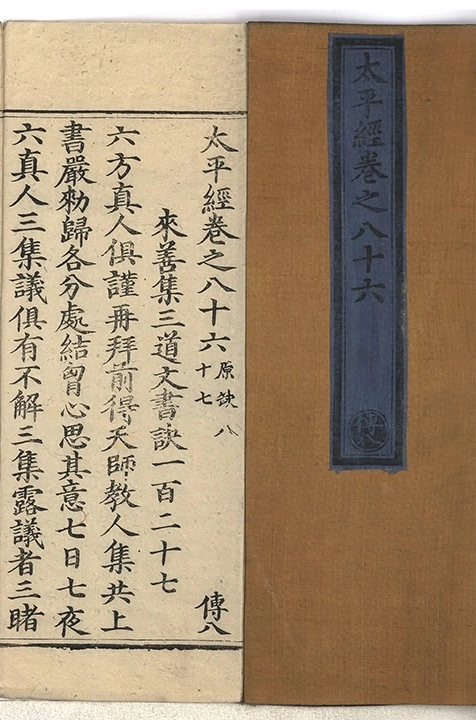 太平經卷之八十六
太平經卷之八十六 原缺八十七 傳八
來善集三道文書訣一百二十七
六方真人俱謹再拜前得天師教人集共上
書嚴勑歸各分處結胷心思其意七日七夜
六真人三集議俱有不解三集露議者三睹